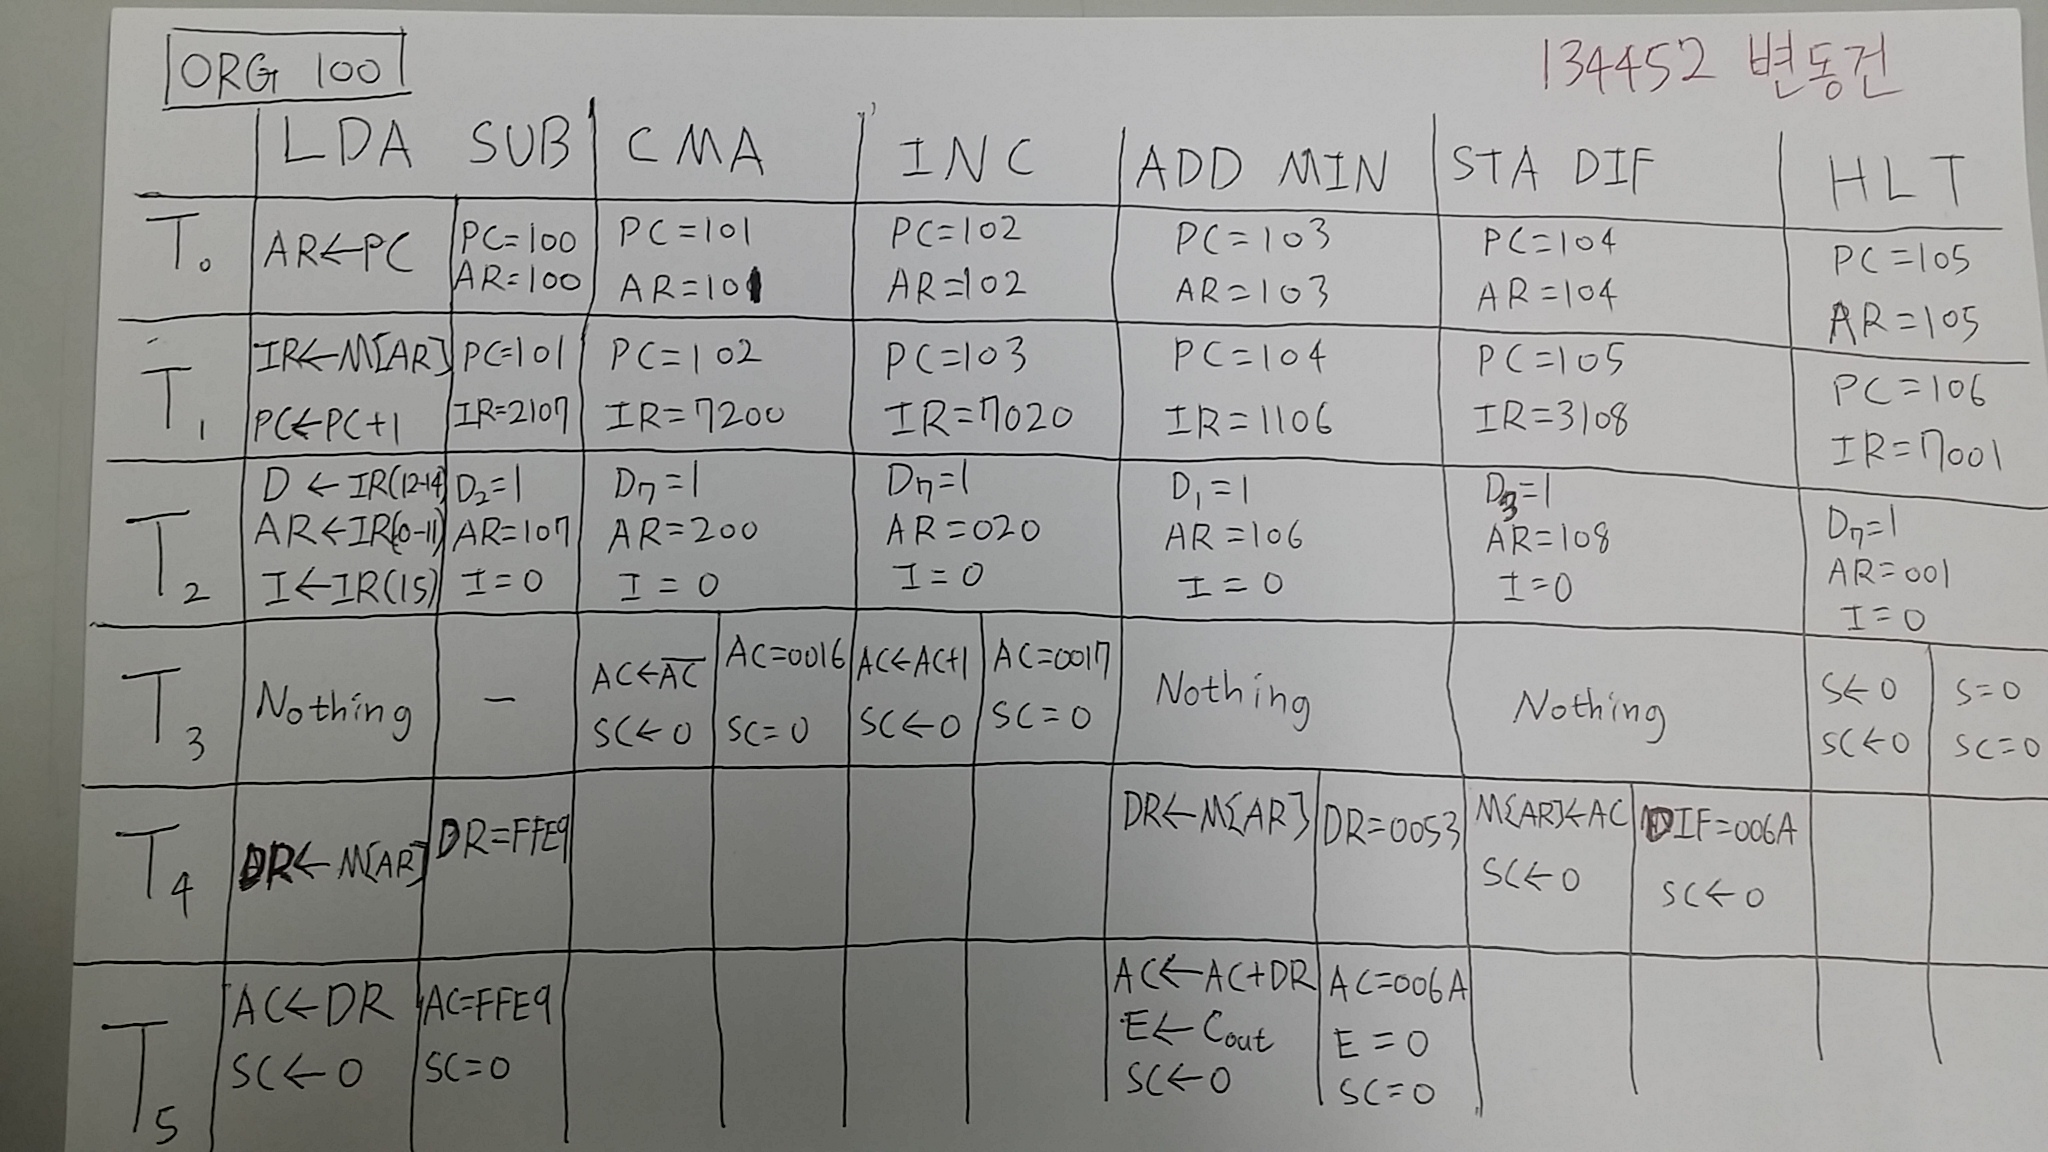 ORG 100
134452 변동건
LDA SUB CMA INC ADD MIN STA DIF HLT
T₀
AR←PC
PC=100
AR=100
PC=101
AR=101
PC=102
AR=102
PC=103
AR=103
PC=104
AR=104
PC=105
AR=105
T₁
IR←M[AR]
PC←PC+1
PC=101
IR=2107
PC=102
IR=7200
PC=103
IR=7020
PC=104
IR=1106
PC=105
IR=3108
PC=106
IR=7001
T₂
D←IR(12-14)
AR←IR(0-11)
I←IR(15)
D₂=1
AR=107
I=0
D₇=1
AR=200
I=0
D₇=1
AR=020
I=0
D₁=1
AR=106
I=0
D₃=1
AR=108
I=0
D₇=1
AR=001
I=0
T₃
Nothing
–
AC←A̅C̅
SC←0
AC=0016
SC=0
AC←AC+1
SC←0
AC=0017
SC=0
Nothing
Nothing
S←0
SC←0
S=0
SC=0
T₄
DR←M[AR]
DR=FFE9
DR←M[AR]
DR=0053
M[AR]←AC
SC←0
DIF=006A
SC←0
T₅
AC←DR
SC←0
AC=FFE9
SC=0
AC←AC+DR
E←Cout
SC←0
AC=006A
E=0
SC=0